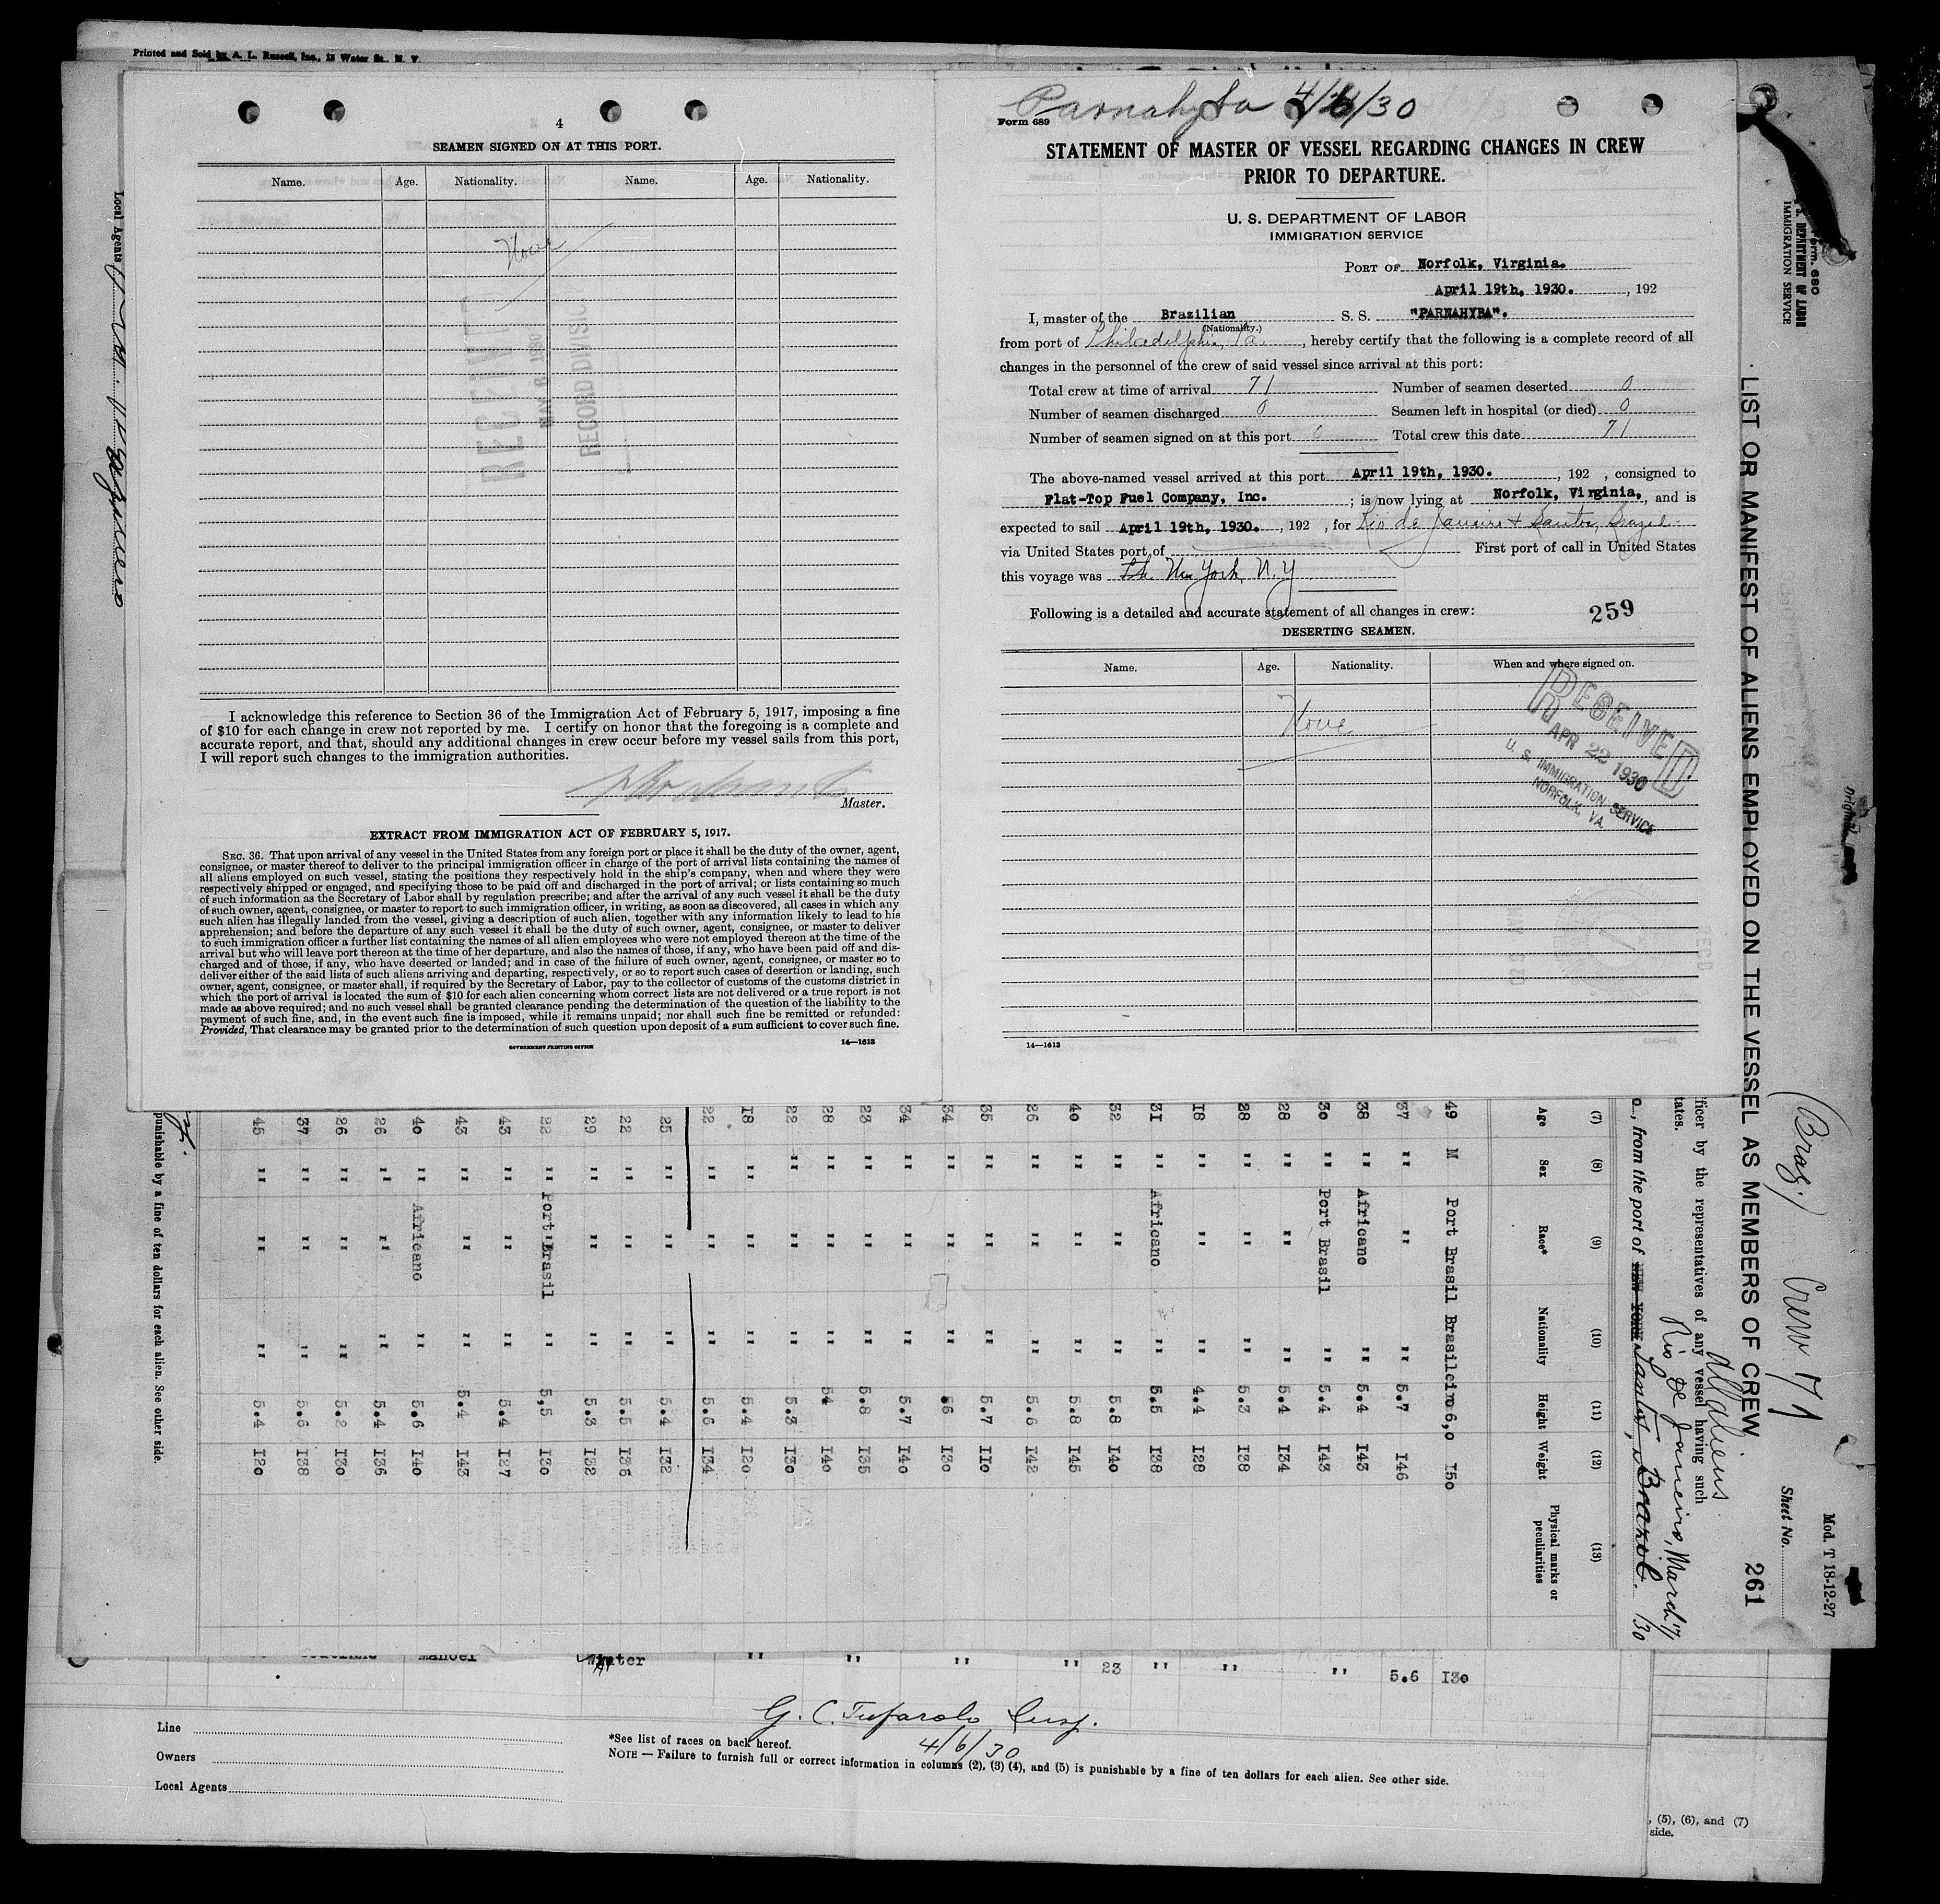 Printed and Sold by A. L. Russell, Inc., 13 Water St. N. Y.
4
SEAMEN SIGNED ON AT THIS PORT.
Name. Age. Nationality. Name. Age. Nationality.
None
RECEIVED
MAY 6 1930
RECORD DIVISION
I acknowledge this reference to Section 36 of the Immigration Act of February 5, 1917, imposing a fine
of $10 for each change in crew not reported by me. I certify on honor that the foregoing is a complete and
accurate report, and that, should any additional changes in crew occur before my vessel sails from this port,
I will report such changes to the immigration authorities.
Master.
EXTRACT FROM IMMIGRATION ACT OF FEBRUARY 5, 1917.
SEC. 36. That upon arrival of any vessel in the United States from any foreign port or place it shall be the duty of the owner, agent,
consignee, or master thereof to deliver to the principal immigration officer in charge of the port of arrival lists containing the names of
all aliens employed on such vessel, stating the positions they respectively hold in the ship's company, when and where they were
respectively shipped or engaged, and specifying those to be paid off and discharged in the port of arrival; or lists containing so much
of such information as the Secretary of Labor shall by regulation prescribe; and after the arrival of any such vessel it shall be the duty
of such owner, agent, consignee, or master to report to such immigration officer, in writing, as soon as discovered, all cases in which any
such alien has illegally landed from the vessel, giving a description of such alien, together with any information likely to lead to his
apprehension; and before the departure of any such vessel it shall be the duty of such owner, agent, consignee, or master to deliver
to such immigration officer a further list containing the names of all alien employees who were not employed thereon at the time of the
arrival but who will leave port thereon at the time of her departure, and also the names of those, if any, who have been paid off and dis-
charged and of those, if any, who have deserted or landed; and in case of the failure of such owner, agent, consignee, or master so to
deliver either of the said lists of such aliens arriving and departing, respectively, or so to report such cases of desertion or landing, such
owner, agent, consignee, or master shall, if required by the Secretary of Labor, pay to the collector of customs of the customs district in
which the port of arrival is located the sum of $10 for each alien concerning whom correct lists are not delivered or a true report is not
made as above required; and no such vessel shall be granted clearance pending the determination of the question of the liability to the
payment of such fine, and, in the event such fine is imposed, while it remains unpaid; nor shall such fine be remitted or refunded:
Provided, That clearance may be granted prior to the determination of such question upon deposit of a sum sufficient to cover such fine.
GOVERNMENT PRINTING OFFICE 14—1613
Parnahyba 4/6/30
Form 689
STATEMENT OF MASTER OF VESSEL REGARDING CHANGES IN CREW
PRIOR TO DEPARTURE.
U. S. DEPARTMENT OF LABOR
IMMIGRATION SERVICE
PORT OF Norfolk, Virginia.
April 19th, 1930. , 192
I, master of the Brazilian S. S. "PARNAHYBA".
(Nationality.)
from port of Philadelphia, Pa. , hereby certify that the following is a complete record of all
changes in the personnel of the crew of said vessel since arrival at this port:
Total crew at time of arrival 71 Number of seamen deserted 0
Number of seamen discharged 0 Seamen left in hospital (or died) 0
Number of seamen signed on at this port 0 Total crew this date 71
The above-named vessel arrived at this port April 19th, 1930. , 192 , consigned to
Flat-Top Fuel Company, Inc. ; is now lying at Norfolk, Virginia, and is
expected to sail April 19th, 1930. , 192 , for Rio de Janeiro + Santos, Brazil
via United States port of First port of call in United States
this voyage was New York, N.Y.
Following is a detailed and accurate statement of all changes in crew: 259
DESERTING SEAMEN.
Name. Age. Nationality. When and where signed on.
None
RECEIVED
APR 22 1930
U. S. IMMIGRATION SERVICE
NORFOLK, VA.
14—1613
Local Agents
Form 680
U. S. DEPARTMENT OF LABOR
IMMIGRATION SERVICE
LIST OR MANIFEST OF ALIENS EMPLOYED ON THE VESSEL AS MEMBERS OF CREW
Original
(Braz.) Crew 71
All aliens
Mod. T 18-12-27
Sheet No.
261
ficer by the representatives of any vessel having such
tates.
Rio de Janeiro, March 17/30
, from the port of NEW YORK Santos, Brazil.
(7) (8) (9) (10) (11) (12) (13)
Age Sex Race* Nationality Height Weight Physical marks or peculiarities
49 M Port Brasil Brasileiro 6,0 150
37 " " " 5.7 146
38 " Africano " 5.4 143
30 " Port Brasil " 5.4 143
28 " " " 5.4 134
28 " " " 5.3 138
18 " " " 4.4 128
31 " Africano " 5.5 138
32 " " " 5.8 140
40 " " " 5.8 145
26 " " " 5.6 142
35 " " " 5.7 110
34 " " " 56 130
34 " " " 5.7 140
23 " " " 5.8 135
28 " " " 54 140
22 " " " 5.3 130
18 " " " 5.4 120
22 " " " 5.6 134
25 " " " 5.4 132
22 " " " 5.5 136
29 " " " 5.3 132
22 " Port Brasil " 5,5 130
43 " " " 5.4 127
43 " " " 5.4 143
40 " Africano " 5.6 140
26 " " " 5.4 136
26 " " " 5.2 130
37 " " " 5.6 138
45 " " " 5.4 120
punishable by a fine of ten dollars for each alien. See other side.
Manoel " " " " 23 " " " 5.6 130
G. C. Tufarolo Insp.
4/6/30
Line
Owners
Local Agents
*See list of races on back hereof.
NOTE — Failure to furnish full or correct information in columns (2), (3) (4), and (5) is punishable by a fine of ten dollars for each alien. See other side.
, (5), (6), and (7)
side.